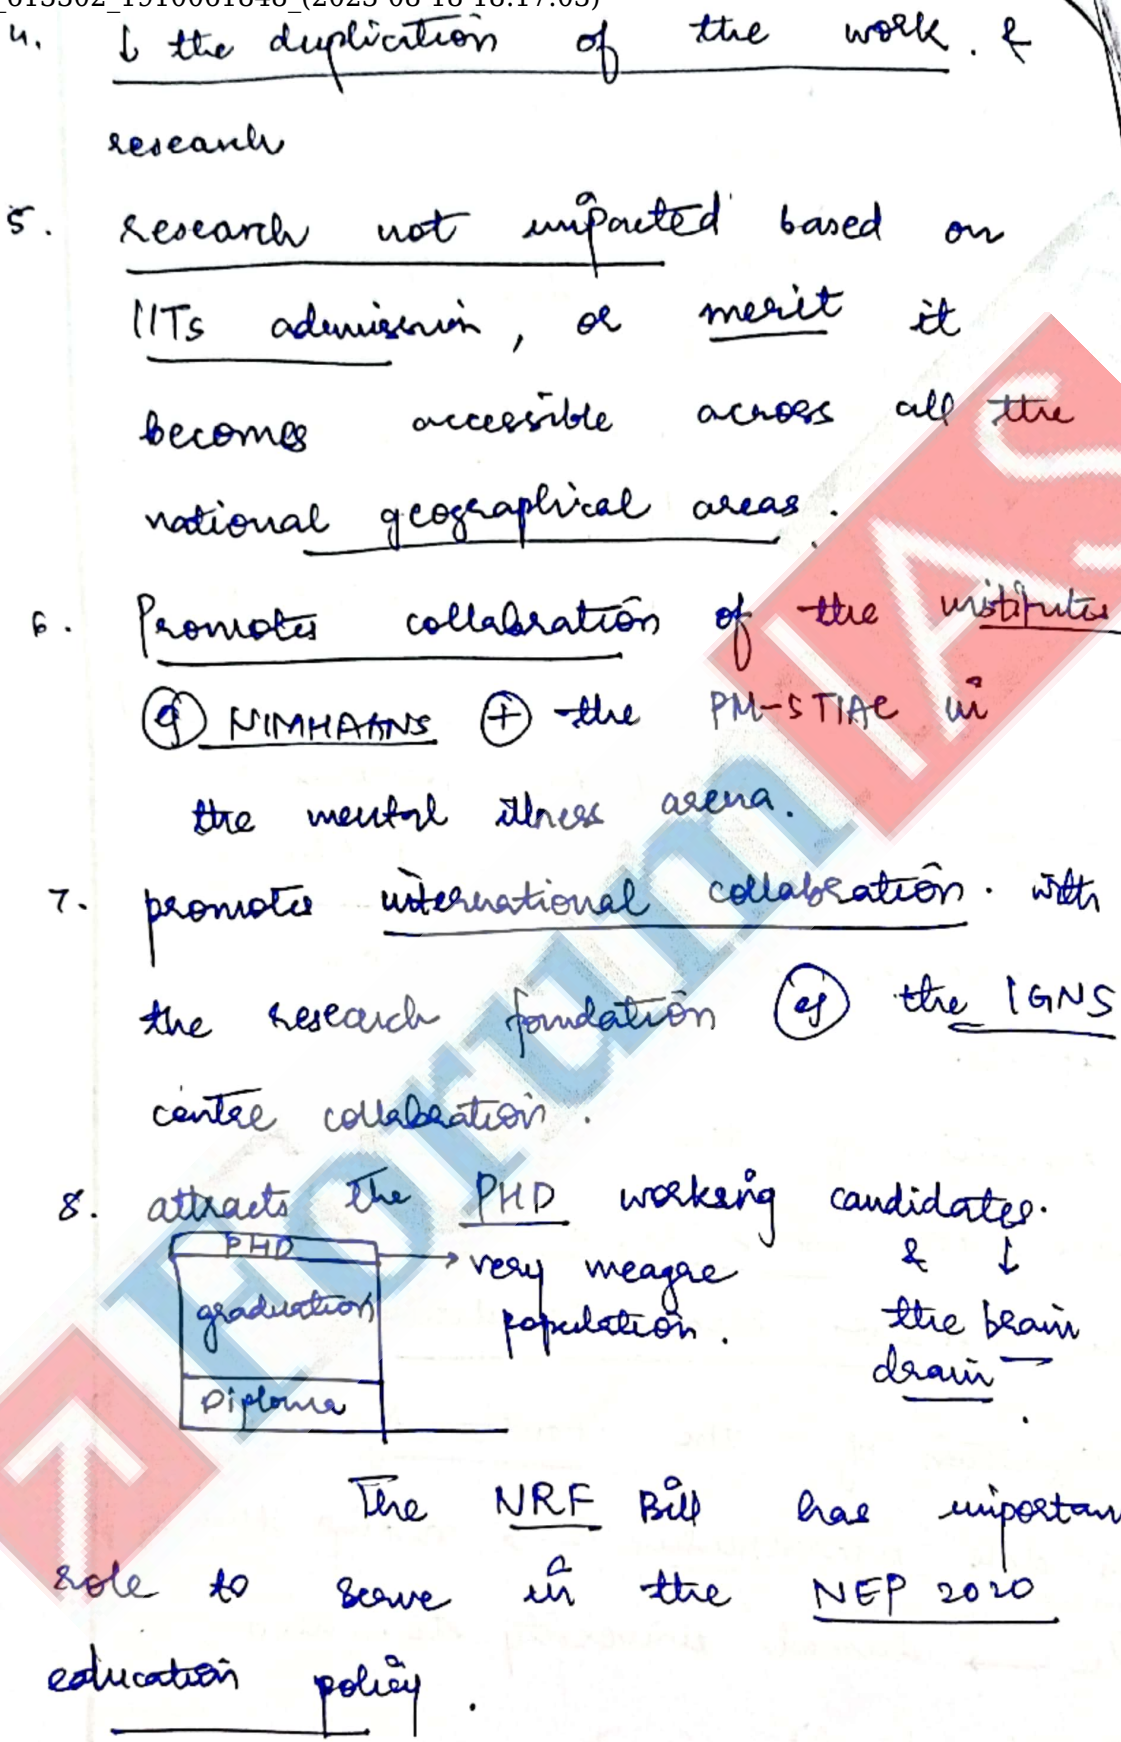 4. ↓ the duplication of the work. &
research
5. research not impacted based on
IITs admission, or merit it
becomes accessible across all the
national geographical areas.
6. Promotes collabration of the institutes
eg NIMHANS + the PM-STIAC in
the mental illness arena.
7. promotes international collabration. with
the research foundation eg the IGNS
centre collabration.
8. attracts the PHD working candidates.
PHD → very meagre population.
& ↓ the brain drain.
graduation
Diploma
The NRF Bill has importan
role to serve in the NEP 2020
education policy.
Forum IAS